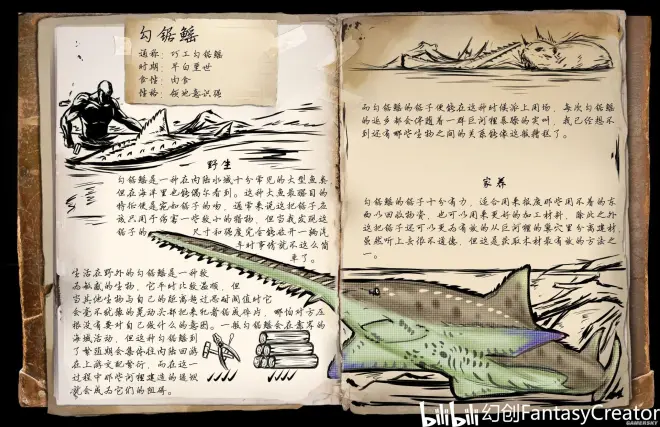 勾锯鳐
通称：巧工勾锯鳐
时期：早白垩世
食性：肉食
性格：领地意识强
野生
勾锯鳐是一种在内陆水域十分常见的大型鱼类
但在海洋里也能偶尔看到。这种大鱼最醒目的
特征便是宛如锯子的吻，通常来说这把锯子应
该只用于伤害一些较小的猎物，但当我发现这
锯子的 尺寸和强度完全能放开一辆汽
车时事情就不这么简
单了。
生活在野外的勾锯鳐是一种较
为敏感的生物，它平时比较温顺，但
当其他生物与自己的距离越过忍耐阈值时它
会毫不犹豫的晃动头部把来犯者锯成碎片，哪怕对方压
根没有要对自己做什么的意图。一般勾锯鳐会在富饶的
海域活动，但这种勾锯鳐到
了繁殖期会集体往内陆回游
在上游交配繁衍，而在这一
过程中那些河狸建造的堤坝
就会成为它们的阻碍。
而勾锯鳐的锯子便能在这种时候派上用场，每次勾锯鳐
的返乡都会伴随着一群巨河狸暴躁的尖叫，我已经想不
到还有哪些生物之间的关系能像这般糟糕了。
家养
勾锯鳐的锯子十分有力，适合用来报废那些用不着的东
西以回收物资，也可以用来更好的加工材料，除此之外
这把锯子还可以更为有效的从巨河狸的巢穴里分离建材，
虽然听上去很不道德，但这是获取木材最有效的方法之
一。
bilibili 幻创FantasyCreator
GAMERSKY